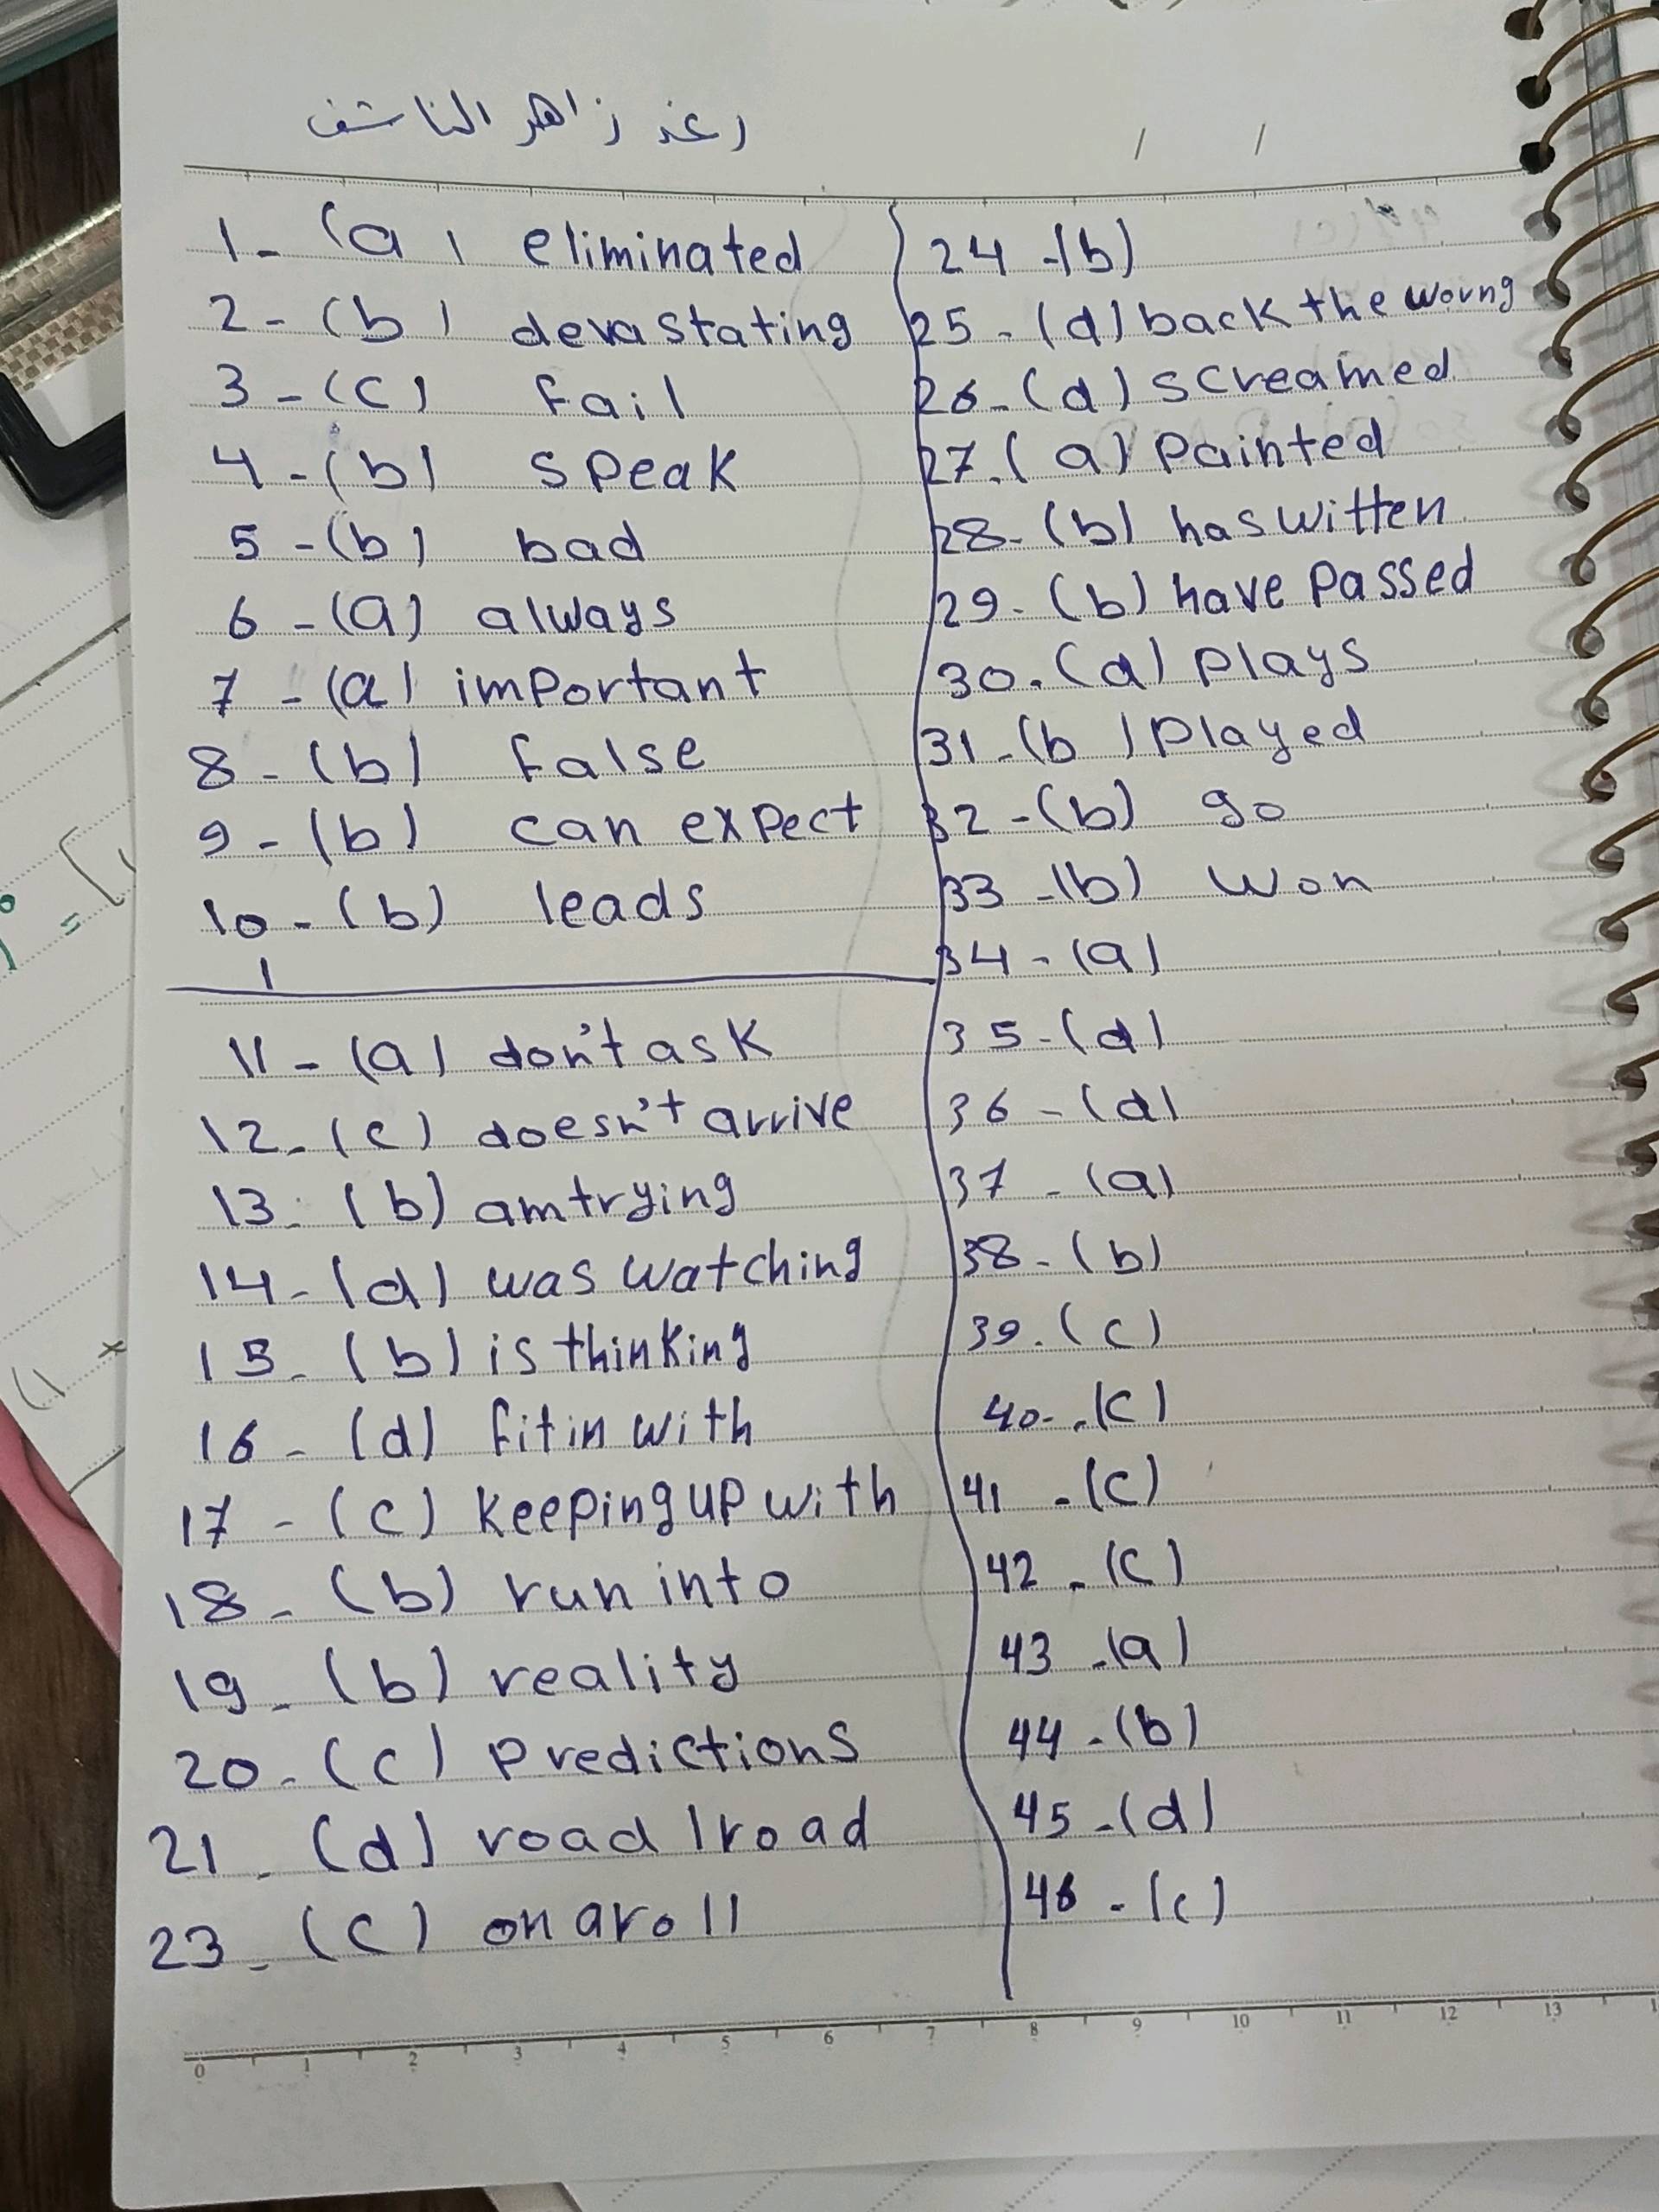 رغد زاهر الناشف
1- (a) eliminated
2- (b) devastating
3- (c) fail
4- (b) speak
5- (b) bad
6- (a) always
7- (a) important
8- (b) false
9- (b) can expect
10- (b) leads
11- (a) don't ask
12- (c) doesn't arrive
13- (b) am trying
14- (d) was watching
15- (b) is thinking
16- (d) fit in with
17- (c) keeping up with
18- (b) run into
19- (b) reality
20- (c) predictions
21- (d) road / road
23- (c) on a roll
24- (b)
25- (d) back the woung
26- (d) screamed
27. (a) painted
28- (b) has witten
29- (b) have passed
30. (d) plays
31- (b) played
32- (b) go
33- (b) won
34- (a)
35- (d)
36- (d)
37- (a)
38- (b)
39. (c)
40- (c)
41- (c)
42- (c)
43- (a)
44- (b)
45- (d)
46- (c)
0 1 2 3 4 5 6 7 8 9 10 11 12 13